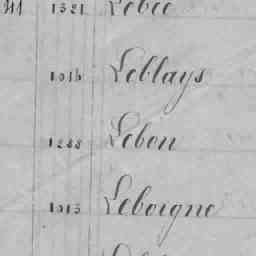 1321 Lebec
1014 Leblays
1288 Lebon
1013 Leborgne